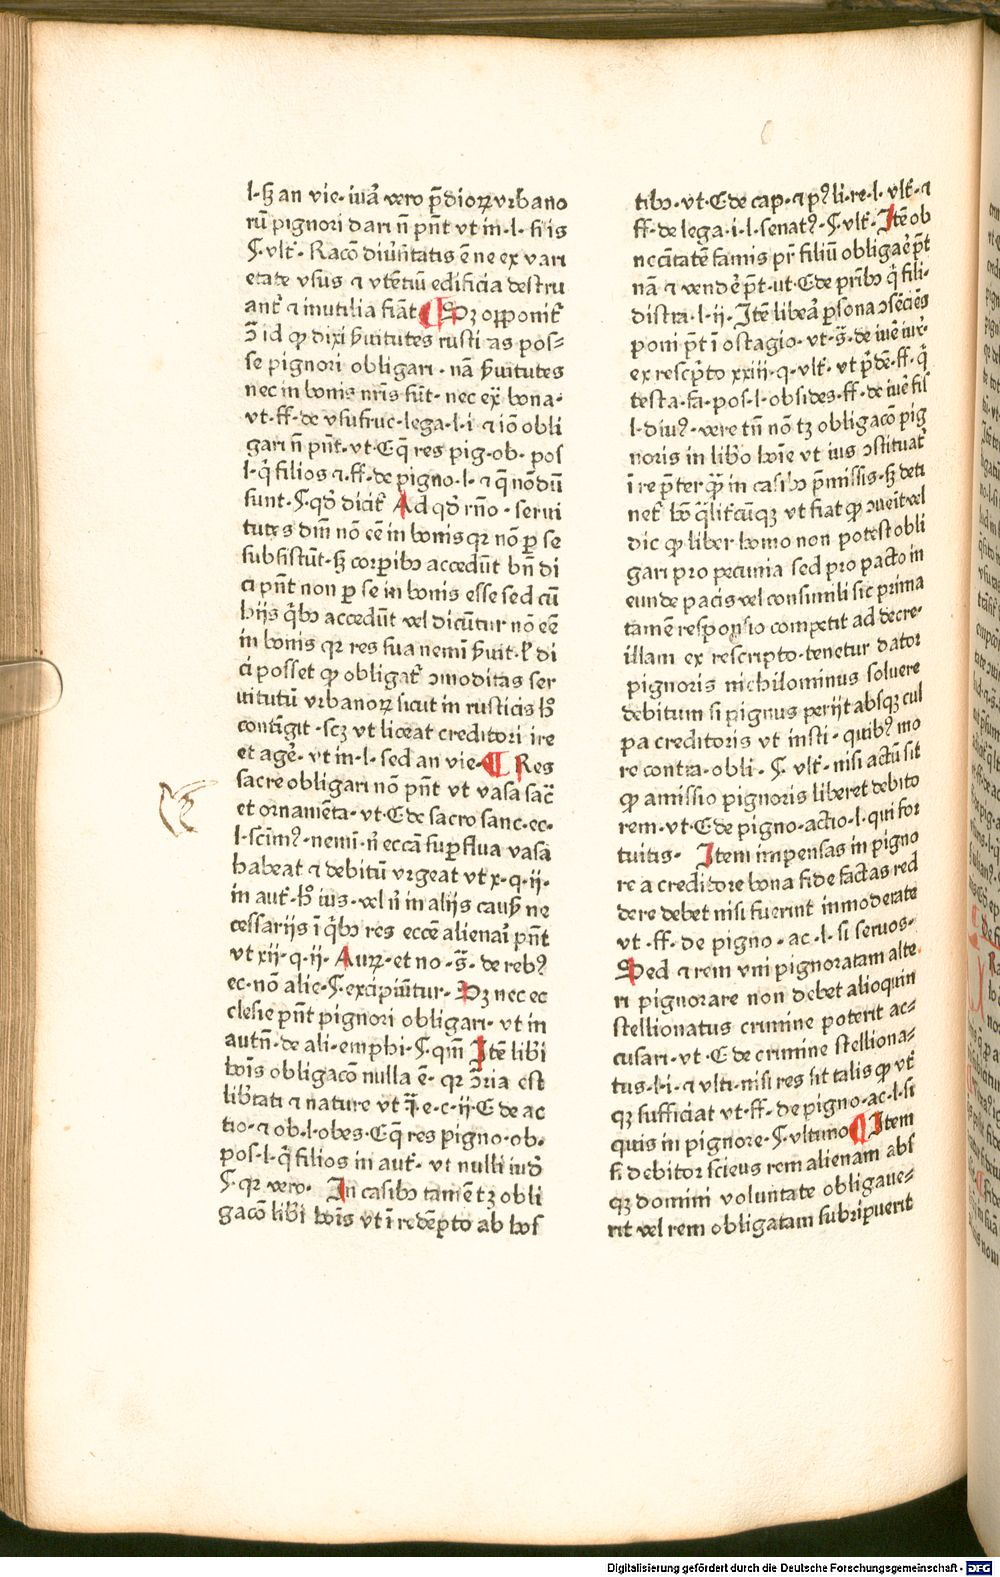 l· sꝫ an vie· iuꝛa᷒ vero p̄dioꝝ vrbano
rū pignori dari n̄ pn̄t vt in· l· si is
§· vlt̉· Racō diuṡitatis ē ne ex vari
etate vsus ⁊ vtētiū edificia destru
ant᷑ ⁊ inutilia fiāt ¶ Sꝫ opponit᷑
ↄ̄ id ꝙ dixi ẜuitutes rusti as pos⸗
se pignori obligari · nā ẜuitutes
nec in bonis nr̄is sūt· nec ex̄ bona·
vt· ff· de vsufruc· lega· l· i· ⁊ iō obli
gari n̄ pn̄t· vt· C q̄ res pig· ob· pos
l· q̄ filios ⁊· ff· de pigno· l· ⁊ q̄ nōdū
sunt· §· qd̉ dicit᷑ Ad qd̉ rn̄o· serui
tutes dn̄i nō cē in bonis qꝛ nō ꝑ se
subsistūt· sꝫ corꝑibꝫ accedūt bn̄ di
ci pn̄t non ꝑ se in bonis esse sed cū
hijs q̄bꝫ accedūt vel dicūtur nō eē
in bonis qꝛ res sua nemī ẜuit· ł di
ci posset ꝙ obligat᷑ ↄmoditas ser
uitutū vrbanoꝝ sicut in rusticis hͦ
contīgit· scꝫ vt liceat creditori ire
et agē· vt in· l· sed an vie· ¶ Res
sacre obligari nō pn̄t vt vasa sac̄
et ornamēta· vt· C de sacro sanc· ec·
l· sc̄im⁹· nemī· n̉ eccā suꝑflua vasa
habeat ⁊ debitū vrgeat vt x· q· ii·
in aut̉· hͦ ius· vel n̉ in alijs caus̄ ne
cessarijs ī q̄bꝫ res eccē alienari pn̄t
vt xii· q· ii· Auꝝ· et no· s̄· de reb⁹
ec· nō alie· §· excipiūtur· Sꝫ nec ec
clesie pn̄t pignori obligari· vt in
autn̄· de ali· emphi· §· qm̄ Itē lib̉i
hoīs obligacō nulla ē· qꝛ ↄ̄ria est
lib̉tati ⁊ nature vt q̄· e· c· ij· C de ac
tio· ⁊ ob· l· obes· C q̄ res pigno· ob·
pos· l· q̄ filios in aut̉· vt nulli iud̉
§· qꝛ vero· In casibꝫ tamē tꝫ obli
gacō lib̉i hoīs vt ī redēpto ab hos
tibꝫ· vt· C de cap· ⁊ p⁹ li· re· l· vlt̉· ⁊
ff· de lega· i· l· senat⁹· §· vlt̉· Itē ob
necītatē famis pr̄ filiū obligaē p̄t
nā ⁊ vendē p̄t· ut· C de pr̄ibꝫ q̄ fili·
distra· l· ii· Itē libeā ꝑsona ↄsēciēs
poni p̄t ī ostagio· vt· s̄· de iuē iur̉·
ex rescp̄to xxiii· q· vlt̉· vt p̄dē· ff· q̄
testa· fa· pos· l· obsides· ff· de iuē fis
l· diu⁹· vere tn̄ nō tꝫ obligacō pig
noris in lib̉o hoīe vt ius ↄstituat᷑
ī re p̄ter qr̄ in casibꝫ p̄missis· sꝫ deti
net᷑ hō q̄lit᷑cūqꝫ vt fiat ꝙ ↄueīt vel
dic ꝙ liber homo non potest obli
gari pro pecunia sed pro pacto in
eunde pacis vel consimili sic prima
tamē responsio competit ad decre·
illam ex rescripto· tenetur dator
pignoris nichilominus soluere
debitum si pignus perijt absqꝫ cul
pa creditoris vt insti· quib⁹ mo
re contra· obli· §· vlt̉· nisi actū sit
ꝙ amissio pignoris liberet debito
rem· vt· C de pigno· actio· l· qui for
tuitis· Item impensas in pigno
re a creditore bona fide factas red
dere debet nisi fuerint inmoderate
vt· ff· de pigno· ac· l· si seruos·
Sed ⁊ rem vni pignoratam alte
ri pignorare non debet alioquin
stellionatus crimine poterit ac⸗
cusari· vt· C de crimine stelliona⸗
tus· l· i· ⁊ vlti· nisi res sit talis ꝙ vt᷑
qꝫ sufficiat vt· ff· de pigno· ac· l· si
quis in pignore· §· vltimo ¶ Item
si debitor scieus rem alienam abs
qꝫ domini voluntate obligaue⸗
rit vel rem obligatam subripuerit
Digitalisierung gefördert durch die Deutsche Forschungsgemeinschaft - DFG